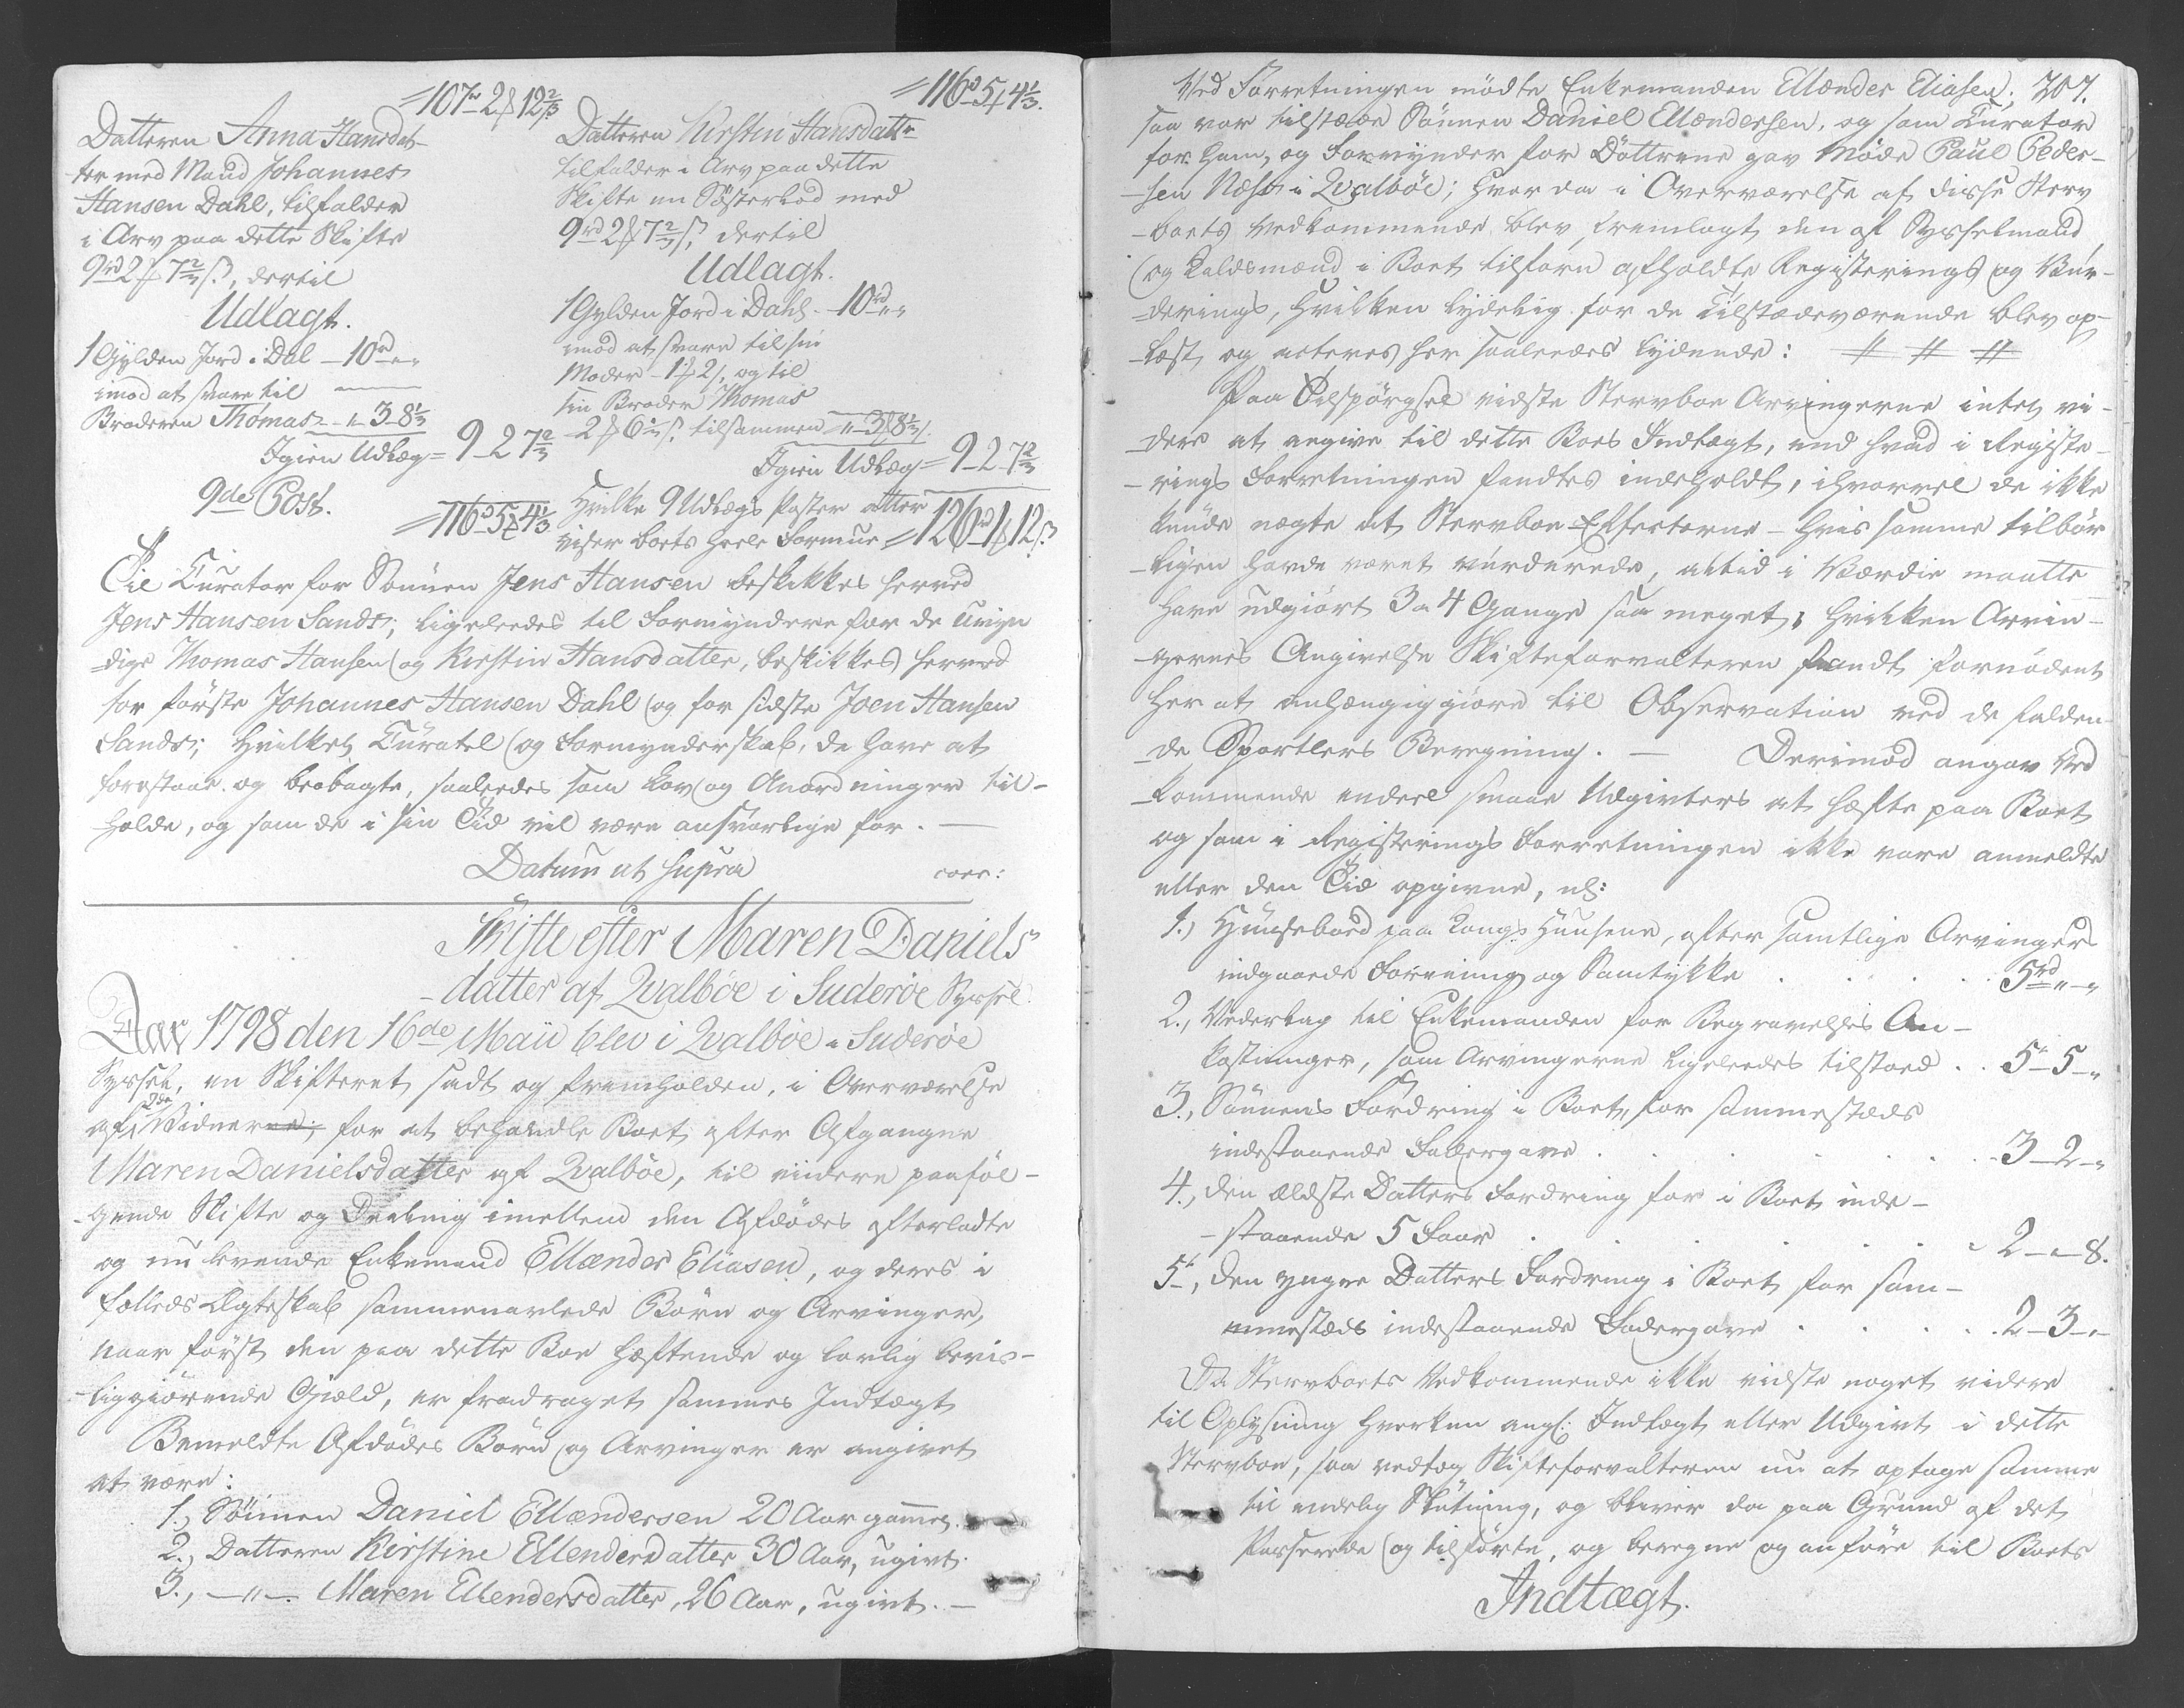 =107rd 2ɱ 12⅔ß
Datteren Anna Hansdat-
ter med Mand Johannes
Hansen Dahl, tilfalder
i Arv paa dette Skifte
9rd 2ɱ 7⅔ß, dertil
Udlagt.
1 Gylden Jord i Dal – 10rd „ „
imod at svare til
Broderen Thomas – „ – 3 – 8⅓
Igien Udlæg = 9 – 2 7⅔
9de Post.
=116 – 5ɱ 4⅓
=116 – 5ɱ 4⅓.
Datteren Kirstin Hansdattr
tilfalder i Arv paa dette
Skifte en Søsterlod med
9rd 2ɱ 7⅔ß, dertil
Udlagt.
1 Gylden Jord i Dahl – 10rd „ „
imod at svare til sin
Moder – 1ɱ 2ß, og til
sin Broder Thomas
2ɱ 6⅓ß, tilsammen „ 3ɱ 8⅓ß.
Igien Udlæg = 9 – 2 – 7⅔
Hvilke 9 Udlægs Poster atter
viser boets heele Formue = 126rd 1ɱ 12ß
Til Curator for Sønnen Jens Hansen beskikkes herved
Jens Hansen Sands; ligeleedes til Formyndere for de Umyn-
dige Thomas Hansen og Kirstin Hansdatter, beskikkes herved
for første Johannes Hansen Dahl og for sidste Joen Hansen
Sands; hvilket Curatel og Formynderskab, de have at
forestaae og beobagte, saaleedes som Lov og Anordninger til-
holde, og som de i sin Tid vil være ansvarlige for. –
Datum ut supra
Skifte efter Maren Daniels
-datter af Qvalbøe i Suderöe Syssel.
Aar 1798 den 16de Maii blev i Qvalbøe i Suderöe
Syssel, en Skifteret sadt og fremholden, i Overværelse
af 2de Vidner, for at behandle Boet efter Afgangne
Maren Danielsdatter af Qvalbøe, til viidere paaføl-
-gende Skifte og Deeling imellem den Afdødes efterladte
og nu levende Enkemand Ellænder Eliasen, og deres i
fælleds Ægteskab sammenavlede Børn og Arvinger,
naar først den paa dette Boe hæftende og lovlig bevis-
-liggiørende Giæld, er fradraget sammes Indtægt
Bemeldte Afdødes Børn og Arvinger er angivet
at være:
1., Sönnen Daniel Ellændersen 20 Aar gammel.
2., Datteren Kirstine Ellendersdatter 30 Aar, ugivt.
3., – „ – Maren Ellendersdatter, 26 Aar, ugivt. –
207.
Ved Forretningen mødte Enkemanden Ellænder Eliasen;
saa var tilstæde Sönnen Daniel Ellændersen, og som Curator
for ham, og Formynder for Döttrene gav Møde Paul Peder-
-sen Næss i Qvalbøe; hvor da i Overværelse af disse Sterv
-boets Vedkommende blev fremlagt den af Sysselmand
og Laldsmænd i Boet tilforn afholdte Registerings og Vur-
-derings, hvilken lydelig for de Tilstædeværende blev op-
-læst, og acteres her saaleedes lydende: # # #
Paa Tilspørgsel vidste Stervboe Arvingerne intet vi-
-dere at angive til dette Boes Indtægt, end hvad i Registe-
-rings Forretningen fandtes indeholdt, ihvorvel de ikke
kunde nægte at Stervboe Effecterne – hvis samme tilbør
-ligen havde været vurderede, altid i Værdie maatte
have udgiørt 3 a 4 Gange saa meget; hvilken Arvin-
-gernes Angivelse Skifteforvalteren fandt fornødent
her at anhængiggiøre til Observation ved de falden-
-de Sportlers Beregning. – Derimod angav Ved
-kommende endeel smaae Udgivter at hæfte paa Boet
og som i Registerings Forretningen ikke vare anmeldte
eller den Tid opgivne, nl:
1., Huusebod paa Kongs Huusene, efter samtlige Arvingers
indgaaede Forening og Samtykke . . . . 5rd „ – „
2., Vederlag til Enkemanden for Begravelses An-
kostninger, som Arvingerne ligeleedes tilstoed . . 5 – 5 – „
3., Sönnens Fordring i Boet, for sammestæds
indestaaende Faddergave . . . . . . 3 – 2 – „
4., Den ældste Datters Fordring for i Boet inde-
-staaende 5 Faar . . . . . 2 – „ – 8.
5., Den yngre Datters Fordring i Boet for sam-
mestæds indestaaende Fadergave . . . . 2 – 3 – „
Da Stervboets Vedkommende ikke vidste noget videre
til Oplysning hverken angl: Indtægt eller Udgivt i dette
Stervboe, saa vedtog Skifteforvalteren nu at optage samme
til endelig Slutning, og bliver da paa Grund af det
Passerede og tilførte, og beregne og anføre til Boets
Indtægt.